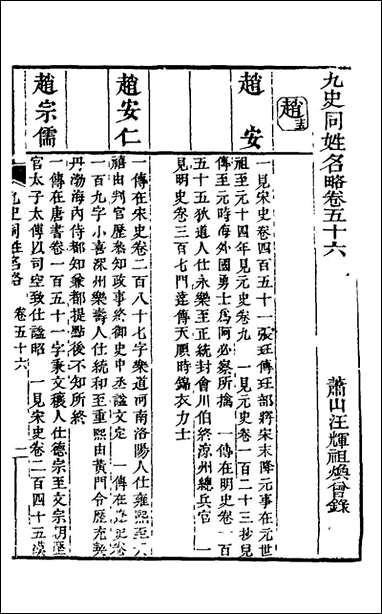 九史同姓名略卷五十六
蕭山汪輝祖煥曾錄
趙
趙安
一見宋史卷四百五十一張珏傳珏部將宋末降元事在元世
祖至元十四年見元史卷九 一見元史卷一百二十三抄兒
傳至元時海外國勇士爲阿必察所擒 一傳在明史卷一百
五十五狄道人仕永樂至正統封會川伯終涼州總兵官 一
見明史卷三百七門達傳天順時錦衣力士
趙安仁
一傳在宋史卷二百八十七字樂道河南洛陽人仕雍熙至大
禧由判官歷參知政事終御史中丞諡文定 一傳在遼史卷
一百九字小喜深州樂壽人仕統和至重熙由黃門令歷充契
丹渤海內侍都知兼都提點後不知所終
趙宗儒
一傳在唐書卷一百五十一字秉文穰人仕德宗至文宗朝歷
官太子太傅以司空致仕諡昭 一見宋史卷二百四十五漢
九史同姓名略 卷五十六 一